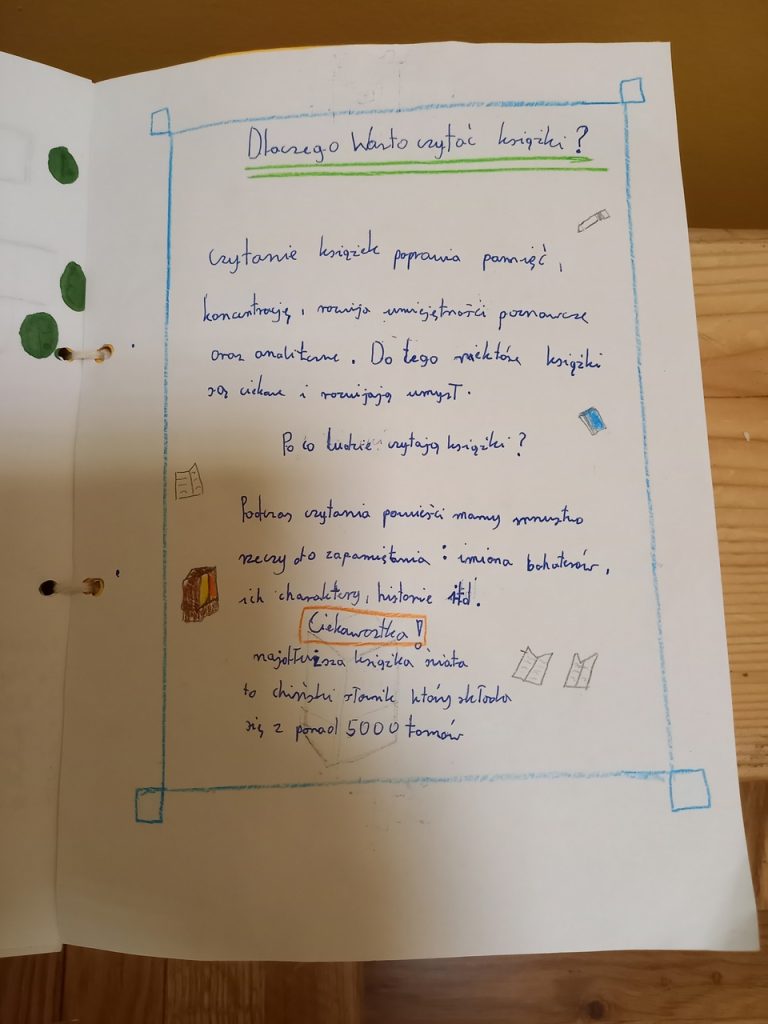 Dlaczego Warto czytać książki?
Czytanie książek poprawia pamięć,
koncentrację, rozwija umiejętności poznawcze
oraz analityczne. Do tego niektóre książki
są ciekawe i rozwijają umysł.
Po co ludzie czytają książki?
Podczas czytania powieści mamy mnóstwo
rzeczy do zapamiętania: imiona bohaterów,
ich charaktery, historie itd.
Ciekawostka!
najdłuższa książka świata
to chiński słownik który składa
się z ponad 5000 tomów